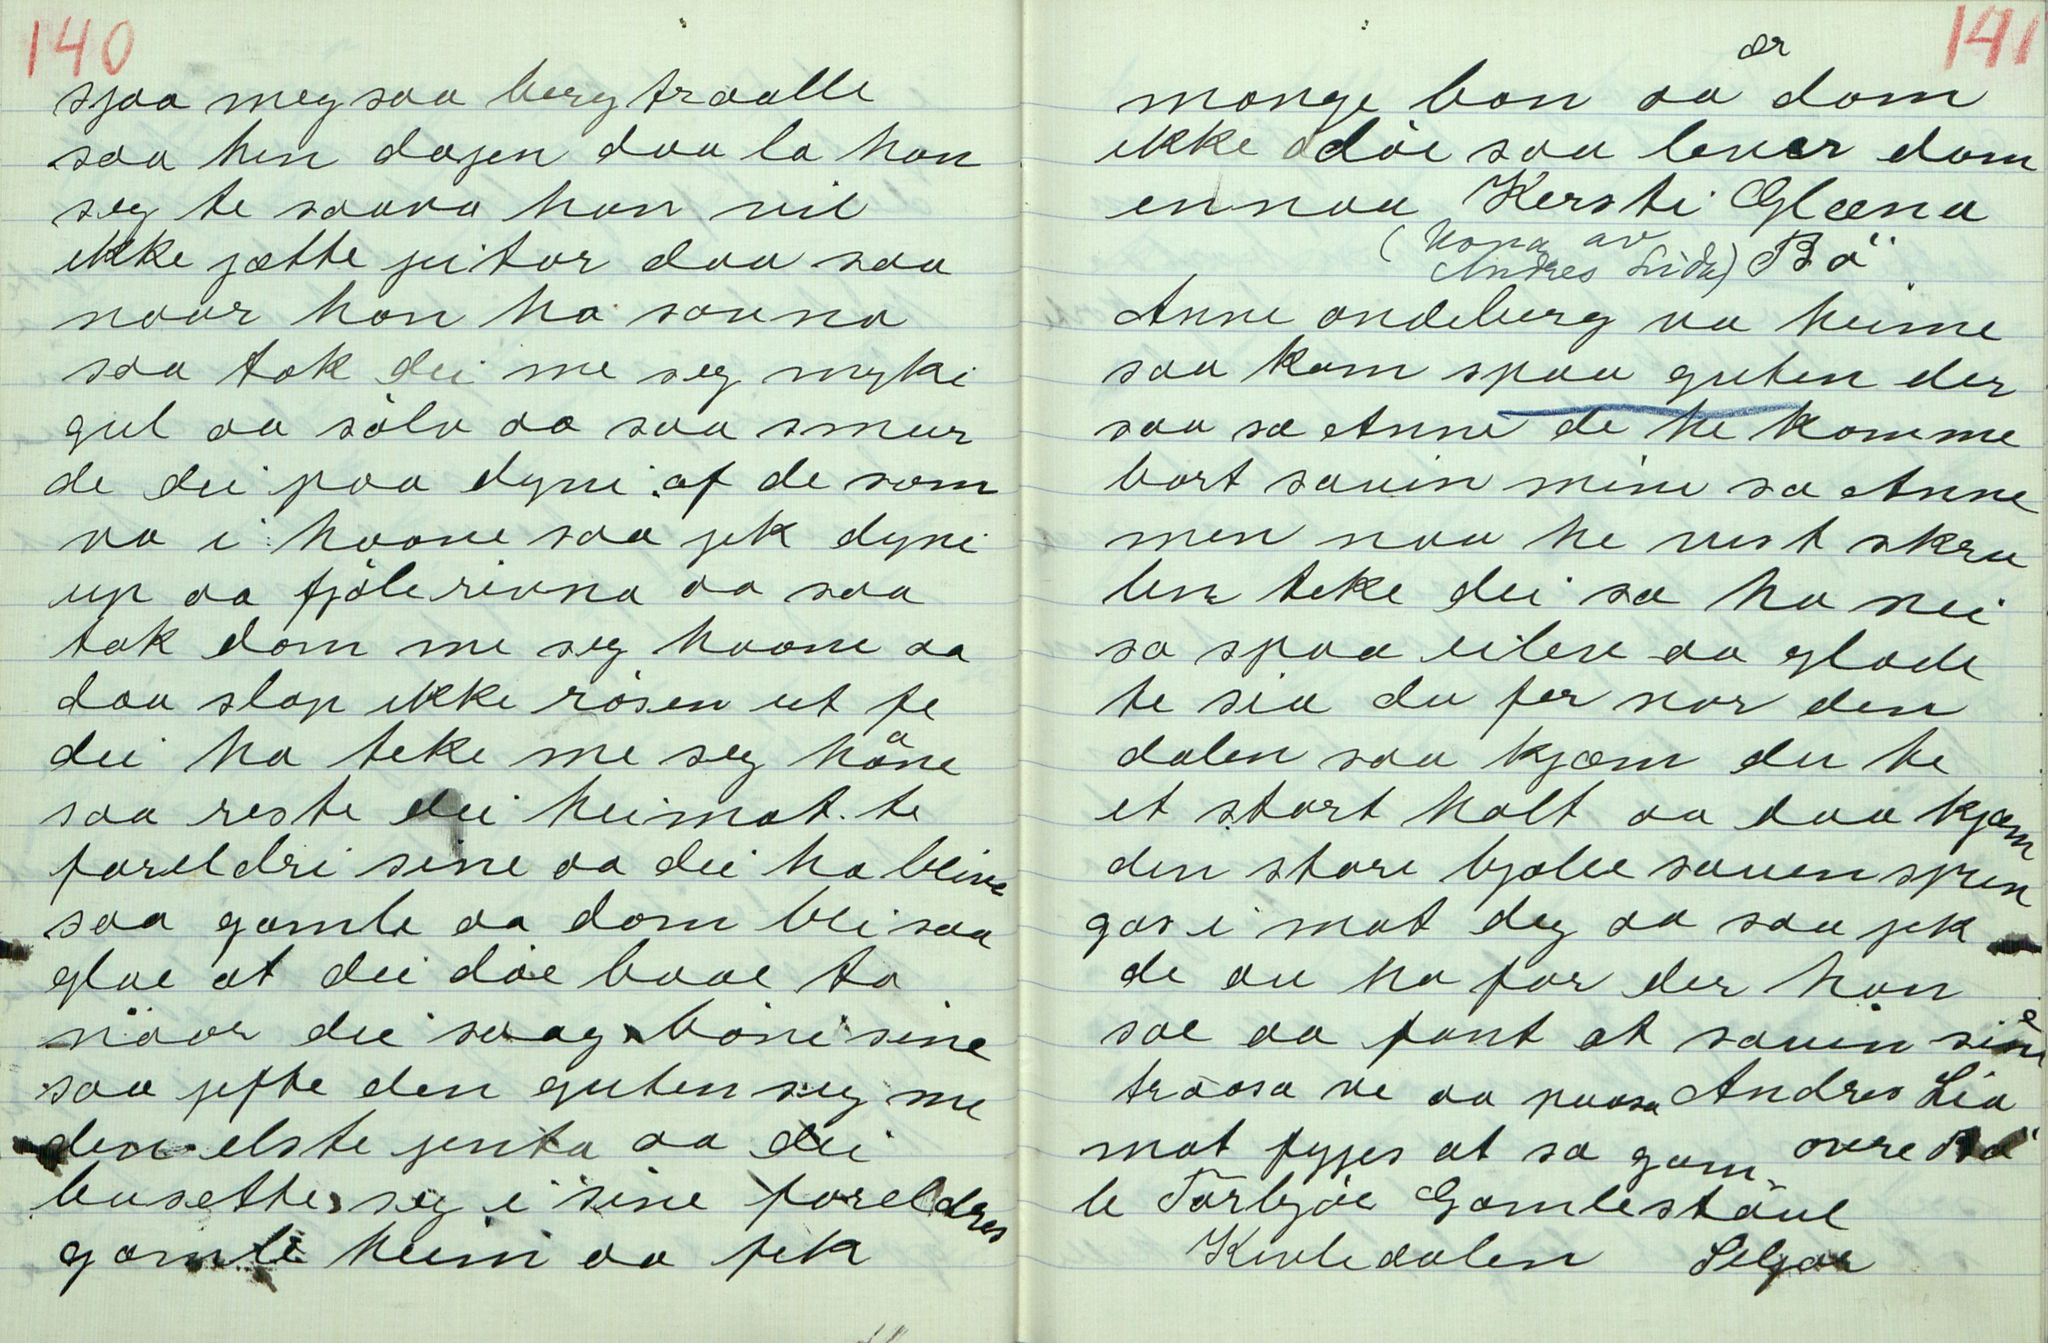 140
sjaa meg saa berg traalle
saa hin dagen daa la han
seg te saava han vil
ikke jætte jeitar daa saa
naar han ha sauna
saa tok dei me seg myki
gul aa sölv aa saa smur
de dei paa dyni af de som
va i haane saa jek dyni
up aa fjöle rivna aa saa
tok dom me seg haane aa
daa slap ikke risen ut fe
dei ha teke me seg håne
saa reste dei heimat te
foreldri sine aa dei ha blive
saa gamle aa dom blei saa
glae at dei döe baae to
naar dei saag böni sine
saa jefte den guten seg me
den elste jenta aa dei
busette seg i sine foreldres
gamle heim aa fek
141
mange bon aa ær dom
ikke döe saa lever dom
ennaa Kersti Glæna
(kona av
Andres Lida) Bö
Anne andeberg va heime
saa kam spaa guten der
saa sa Anne de he komme
bort sauin mine sa Anne
men naa he vest skru
ben teke dei sa ha nei
sa spaa eilen aa glade
te sia du fer nor den
dalen saa kjæm du te
et stort holt aa daa kjæm
den store bjølle sauen spren
gas i mot deg aa saa jek
de au ha for der han
sae aa fant at sauin sine
traasa ve aa paasa Andres Lia
mat fyjes at sa gam- övre Bö
le Törbjör Gamlestöul
Kivledalen Seljor